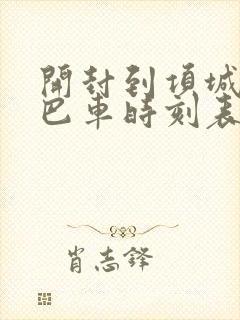 開封到項城
巴車時刻表
肖志鋒